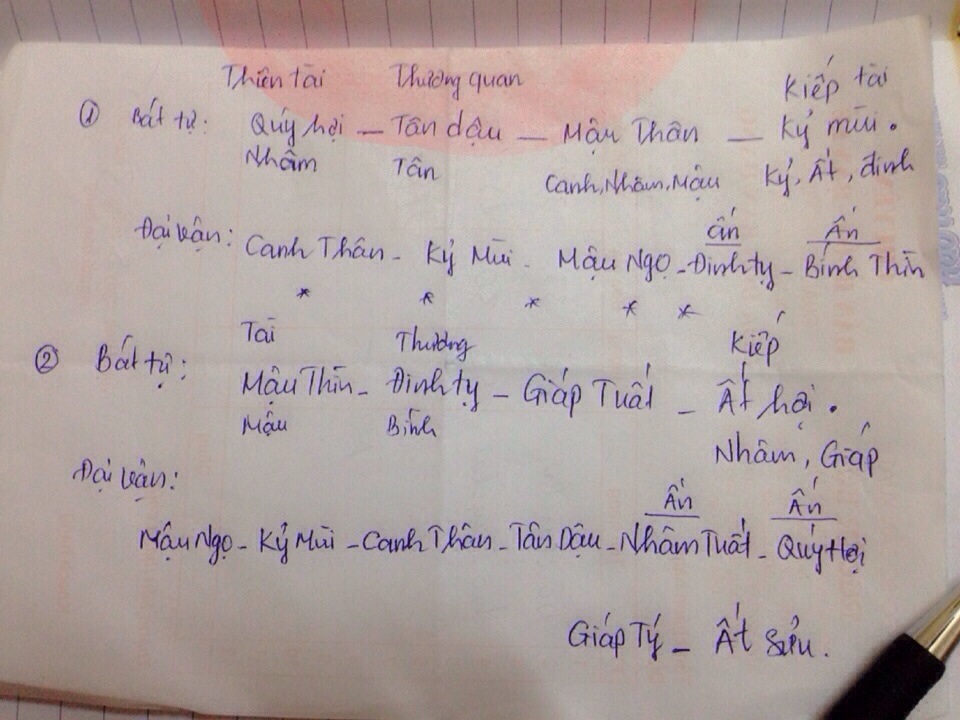 Thiên tài Thương quan Kiếp tài
① Bát tự: Quý hợi - Tân dậu - Mậu Thân - Kỷ mùi.
Nhâm Tân Canh, Nhâm, Mậu Kỷ, Ất, đinh
ấn Ấn
Đại vận: Canh Thân - Kỷ Mùi - Mậu Ngọ - Đinh tỵ - Bính Thìn
* * * * *
Tài Thương Kiếp
② Bát tự: Mậu Thìn - Đinh tỵ - Giáp Tuất - Ất hợi.
Mậu Bính Nhâm, Giáp
Đại vận:
Ấn Ấn
Mậu Ngọ - Kỷ Mùi - Canh Thân - Tân Dậu - Nhâm Tuất - Quý Hợi
Giáp Tý - Ất Sửu.